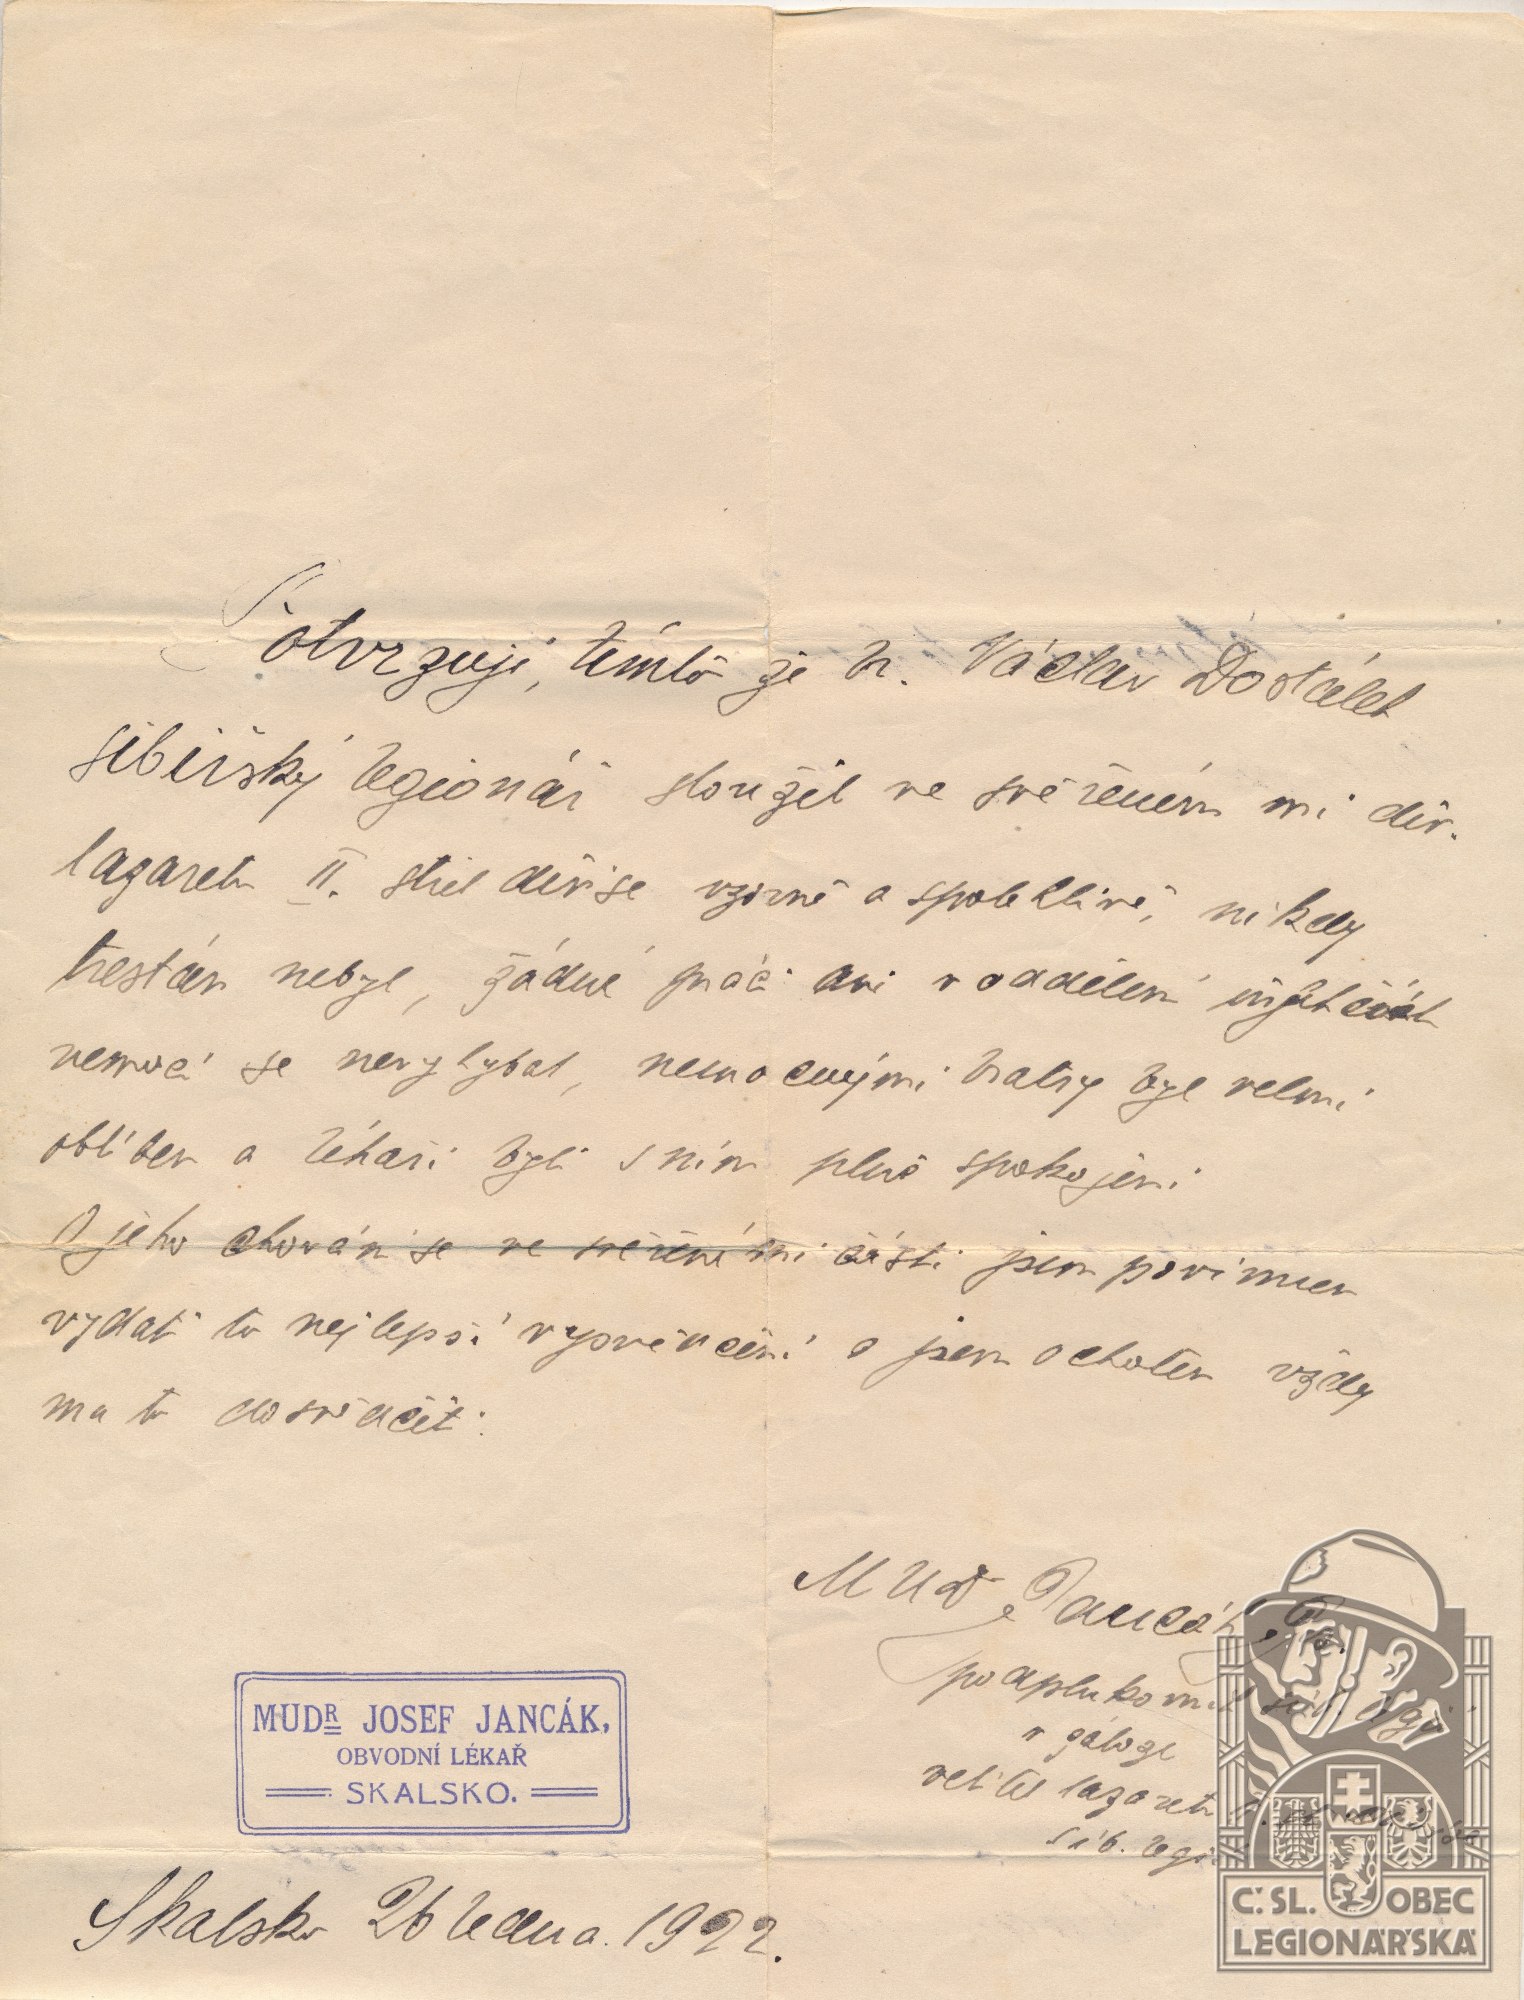 Potvrzuji, tímto že p. Václav Dostálek
sibiřský legionář sloužil ve svěřeném mi div.
lazaretu II. střel divise vzorně a spolehlivě, nikdy
trestán nebyl, žádné práci ani v oddělení
nemocí se nevyhybal, nemocnými bratry byl velmi
oblíben a lékaři byli s ním plně spokojeni
O jeho chování se ve svěřené mi části jsem povinnen
vydati to nejlepší vysvědčení a jsem ochoten vždy
mu to dosvědčit.
MUDr Jancák
podplukovník sib. legií
v záloze
velitel lazaretu
sib. legií
MUDR JOSEF JANCÁK,
OBVODNÍ LÉKAŘ
SKALSKO.
Skalsko 26 ledna. 1922.
Č.SL. OBEC
LEGIONÁŘSKÁ